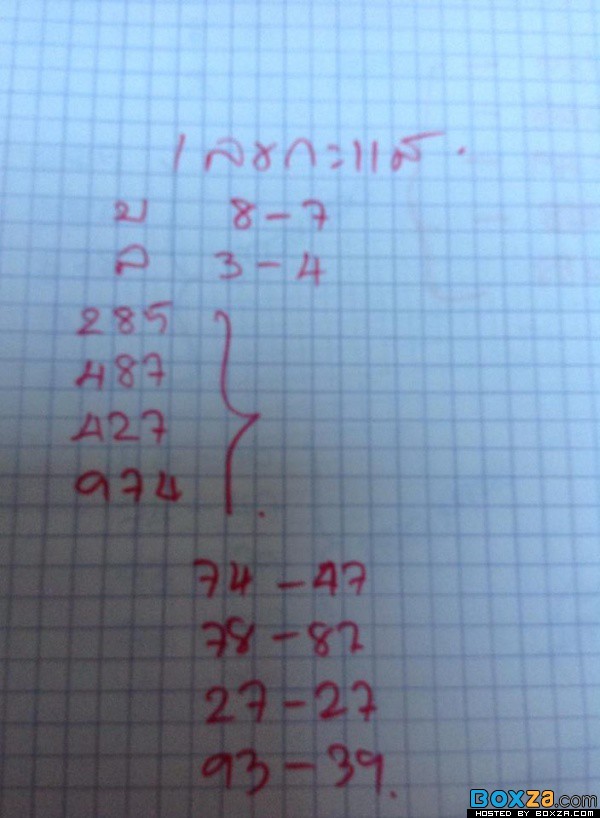 บ 8-7
ล 3-4
285
487
427
974
74-47
78-82
27-27
93-39.
BOXZA.com
HOSTED BY BOXZA.COM